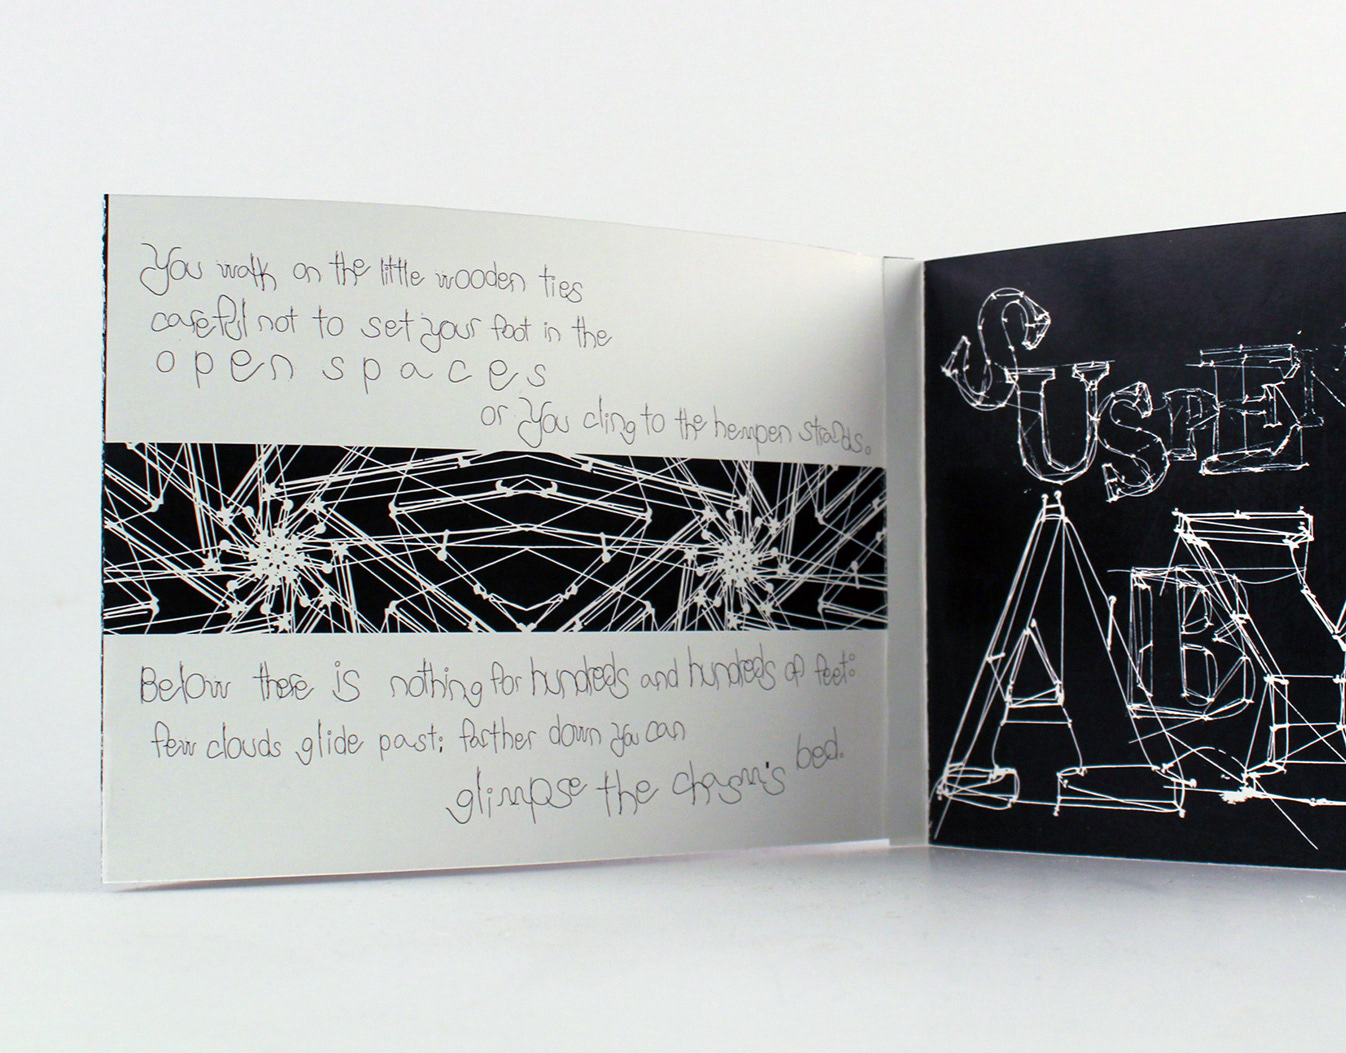 You walk on the little wooden ties
careful not to set your foot in the
open spaces
or you cling to the hempen strands.
Below there is nothing for hundreds and hundreds of feet:
few clouds glide past; farther down you can
glimpse the chasm's bed.
SUSPEN
ABY